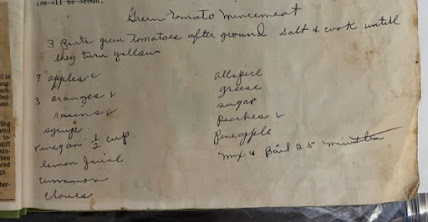 Green Tomato Mincemeat
3 Parts green tomatoes after ground salt & cook untill
they turn yellow
7 apples
3 oranges
raisens
syrup
vinegar 1/2 cup.
lemon juice
cinnamon
cloves
allspice
grease
sugar
peaches
pineapple
mix & Boil 25 minutes